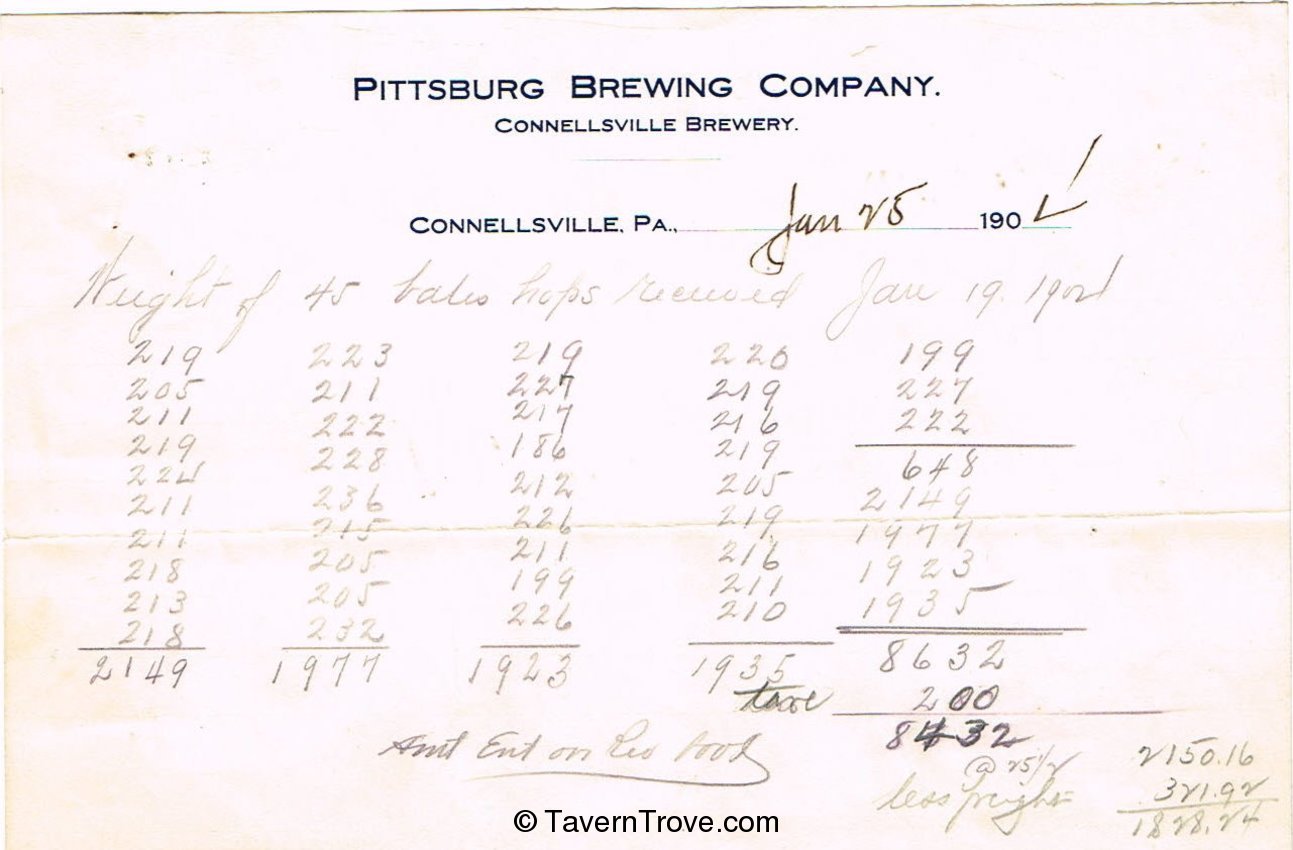 PITTSBURG BREWING COMPANY.
CONNELLSVILLE BREWERY.
CONNELLSVILLE, PA., Jan 25 190
Weight of 45 bales hops received Jan 19. 1902
219 223 219 220 199
205 211 227 219 227
211 222 217 216 222
219 228 186 219 648
224 236 212 205 2149
211 215 226 219 1977
211 205 211 216 1923
218 205 199 211 1935
213 232 226 210 8632
218
2149 1977 1923 1935
tare 200
8432
Amt Ent on Rec Book
@ 25 1/2 2150.16
less freight 321.92
1828.24
© TavernTrove.com